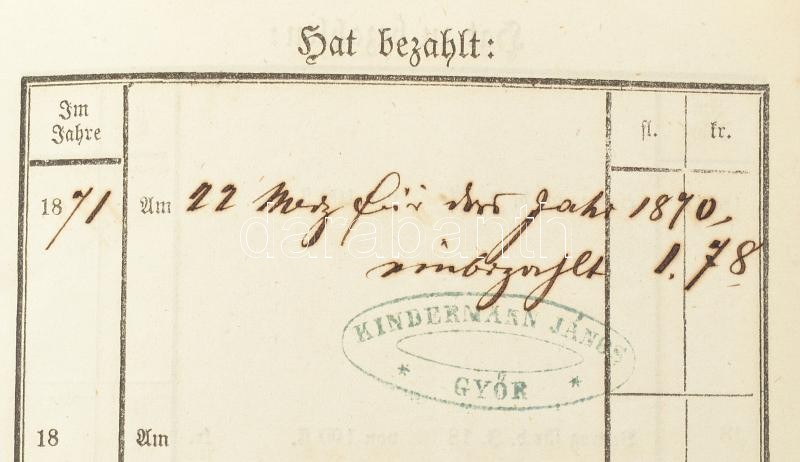 Hat bezahlt:
Im
Jahre
fl. kr.
1871 Am 22 Merz für das Jahr 1870,
einbezahlt 1. 78
KINDERMANN JÁNOS
* GYŐR *
18 Am
darabanth